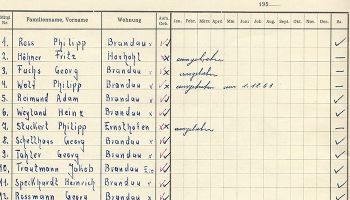 195
Mitgl. Nr. Familienname, Vorname Wohnung Aufn. Geb. Jan. Febr. März April Mai Juni Juli Aug. Sept. Okt. Nov. Dez.
1. Ross Philipp Brandau
2. Höhner Fritz Hoxhohl ausgeliehen
3. Fuchs Georg Brandau
4. Wolf Philipp Brandau 1.12.61
5. Reimund Adam Brandau
6. Weyland Heinz Brandau
7. Stuckert Philipp Ernsthofen
8. Schellhaas Georg Brandau
9. Tahler Georg Brandau
10. Trautmann Jakob Brandau
11. Speckhardt Heinrich Brandau
12. Rossmann Georg Brandau